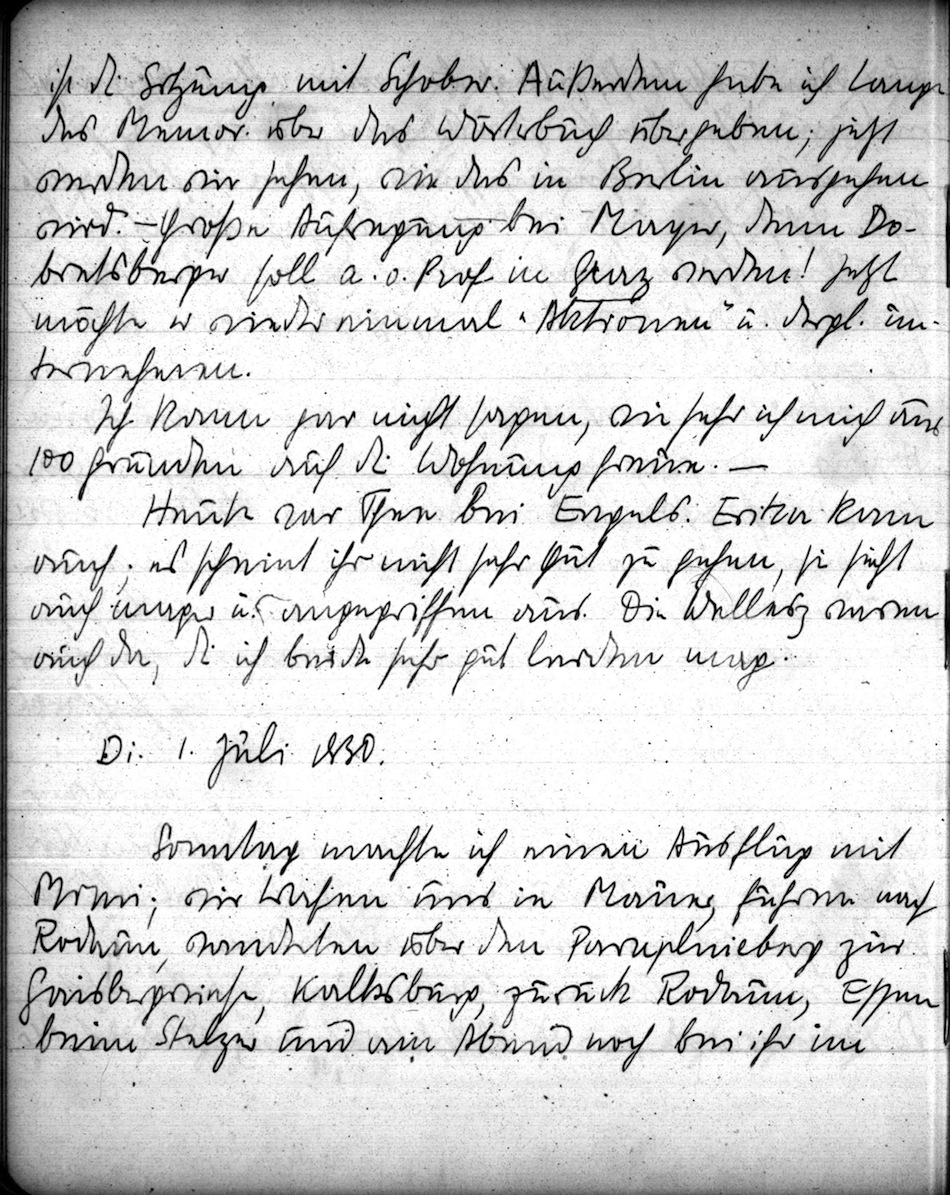 ist die Sitzung mit Schober. Außerdem habe ich Lange
das Memor. über das Wörterbuch übergeben; jetzt
werden wir sehen, wie das in Berlin ausgehen
wird. – Große Aufregung bei Mayer, denn Do-
bretsberger soll a. o. Prof in Graz werden! Jetzt
möchte er wieder einmal „Aktionen" u. dergl. un-
ternehmen.
Ich kann gar nicht sagen, wie sehr ich mich aus
100 Gründen auf die Wohnung freue. —
Heute war Thee bei Engels. Erika kam
auch; es scheint ihr nicht sehr gut zu gehen, sie sieht
auch mager u. angegriffen aus. Die Wellesz waren
auch da, die ich beide sehr gut leiden mag.
Di. 1. Juli 1930.
Sonntag machte ich einen Ausflug mit
Mimi; wir trafen uns in Mauer, fuhren nach
Rodaun, wandelten über den Parapluieberg zur
Gaisbergwiese, Kalksburg, zurück Rodaun, Essen
beim Stelzer und am Abend noch bei ihr im